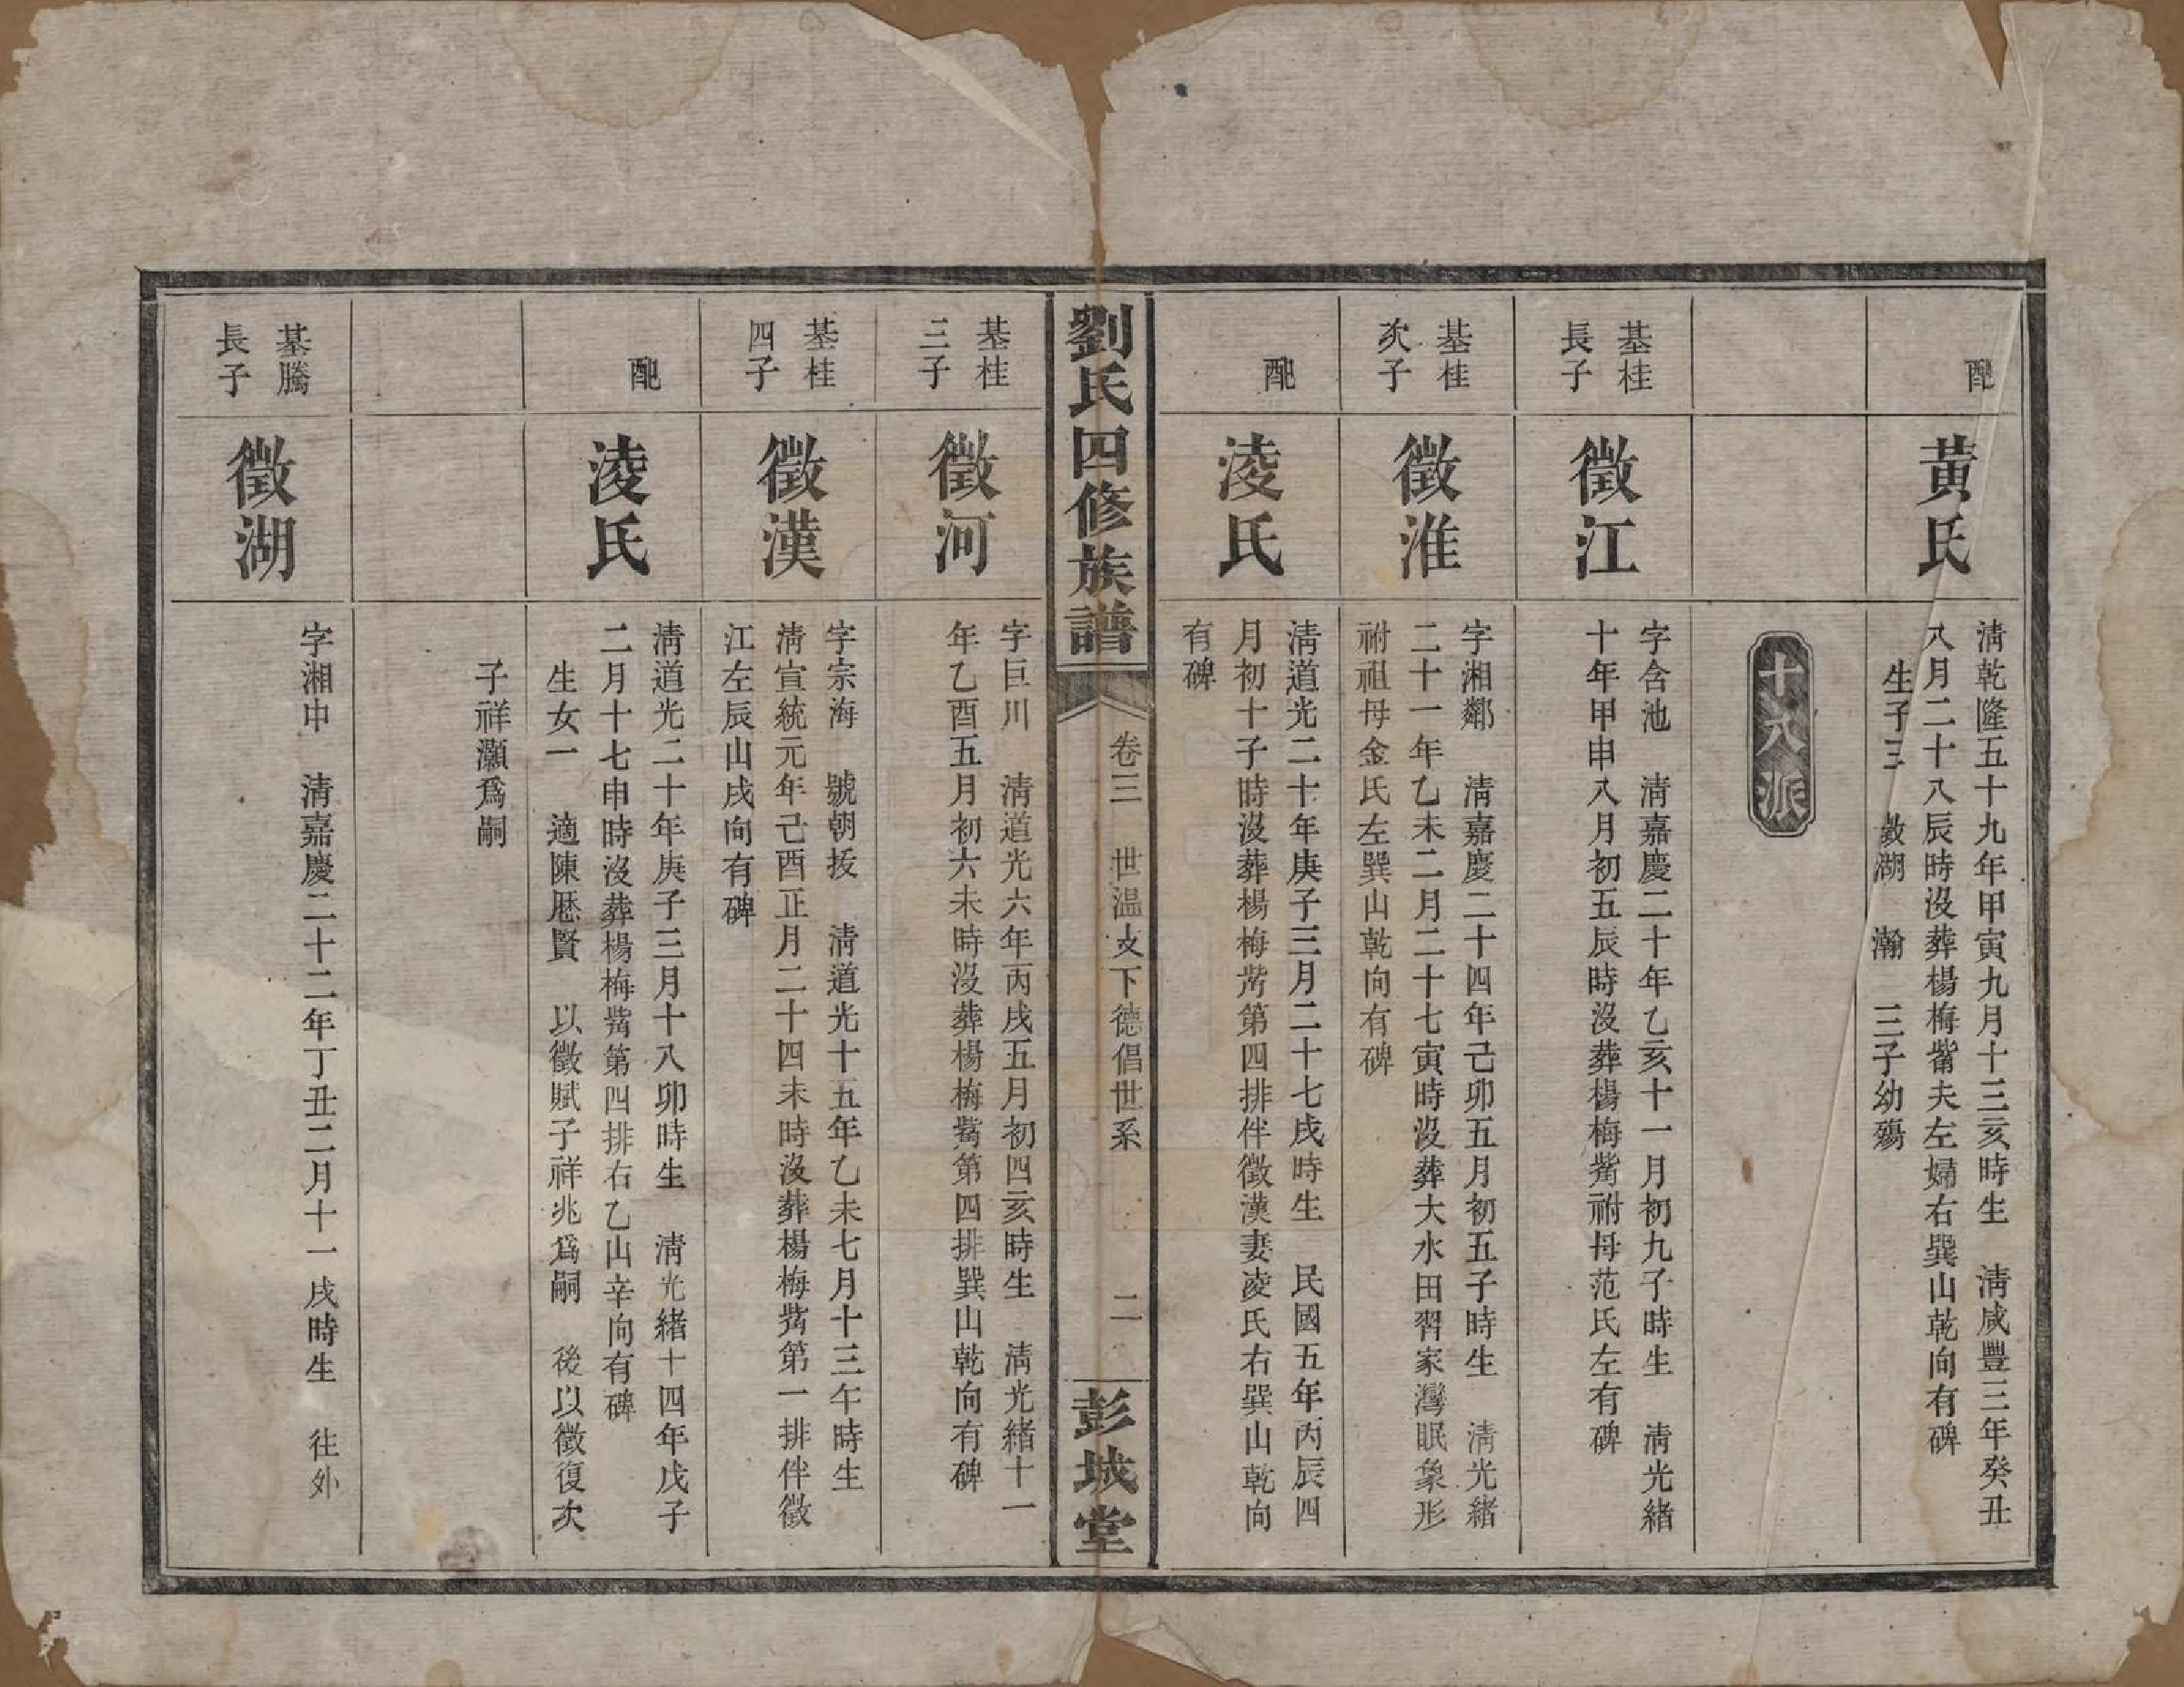 配
黃氏
清乾隆五十九年甲寅九月十三亥時生　清咸豐三年癸丑
八月二十八辰時沒葬楊梅觜夫左婦右巽山乾向有碑
生子三　數湖　瀚　三子幼殤
十八派
基桂
長子
徵江
字含池　清嘉慶二十年乙亥十一月初九子時生　清光緒
十年甲申八月初五辰時沒葬楊梅觜祔母范氏左有碑
基桂
次子
徵淮
字湘鄰　清嘉慶二十四年己卯五月初五子時生　清光緒
二十一年乙未二月二十七寅時沒葬大水田習家灣眠象形
祔祖母金氏左巽山乾向有碑
配
淩氏
清道光二十年庚子三月二十七戌時生　民國五年丙辰四
月初十子時沒葬楊梅觜第四排伴徵漢妻凌氏右巽山乾向
有碑
劉氏四修族譜
卷三　世溫支下德倡世系　二
彭城堂
基桂
三子
徵河
字巨川　清道光六年丙戌五月初四亥時生　清光緒十一
年乙酉五月初六未時沒葬楊梅觜第四排巽山乾向有碑
基桂
四子
徵漢
字宗海　號朝扳　清道光十五年乙未七月十三午時生
清宣統元年己酉正月二十四未時沒葬楊梅觜第一排伴徵
江左辰山戌向有碑
配
淩氏
清道光二十年庚子三月十八卯時生　清光緒十四年戊子
二月十七申時沒葬楊梅觜第四排右乙山辛向有碑
生女一　適陳厯賢　以徵賦子祥兆爲嗣　後以徵復次
子祥灝爲嗣
基騰
長子
徵湖
字湘中　清嘉慶二十二年丁丑二月十一戌時生　往外